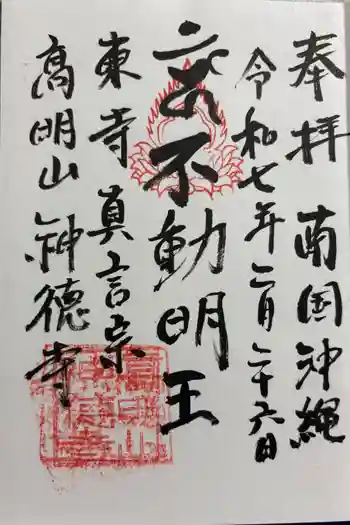 奉拝 南国沖縄
令和七年二月二十六日
不動明王
東寺真言宗
高明山神德寺